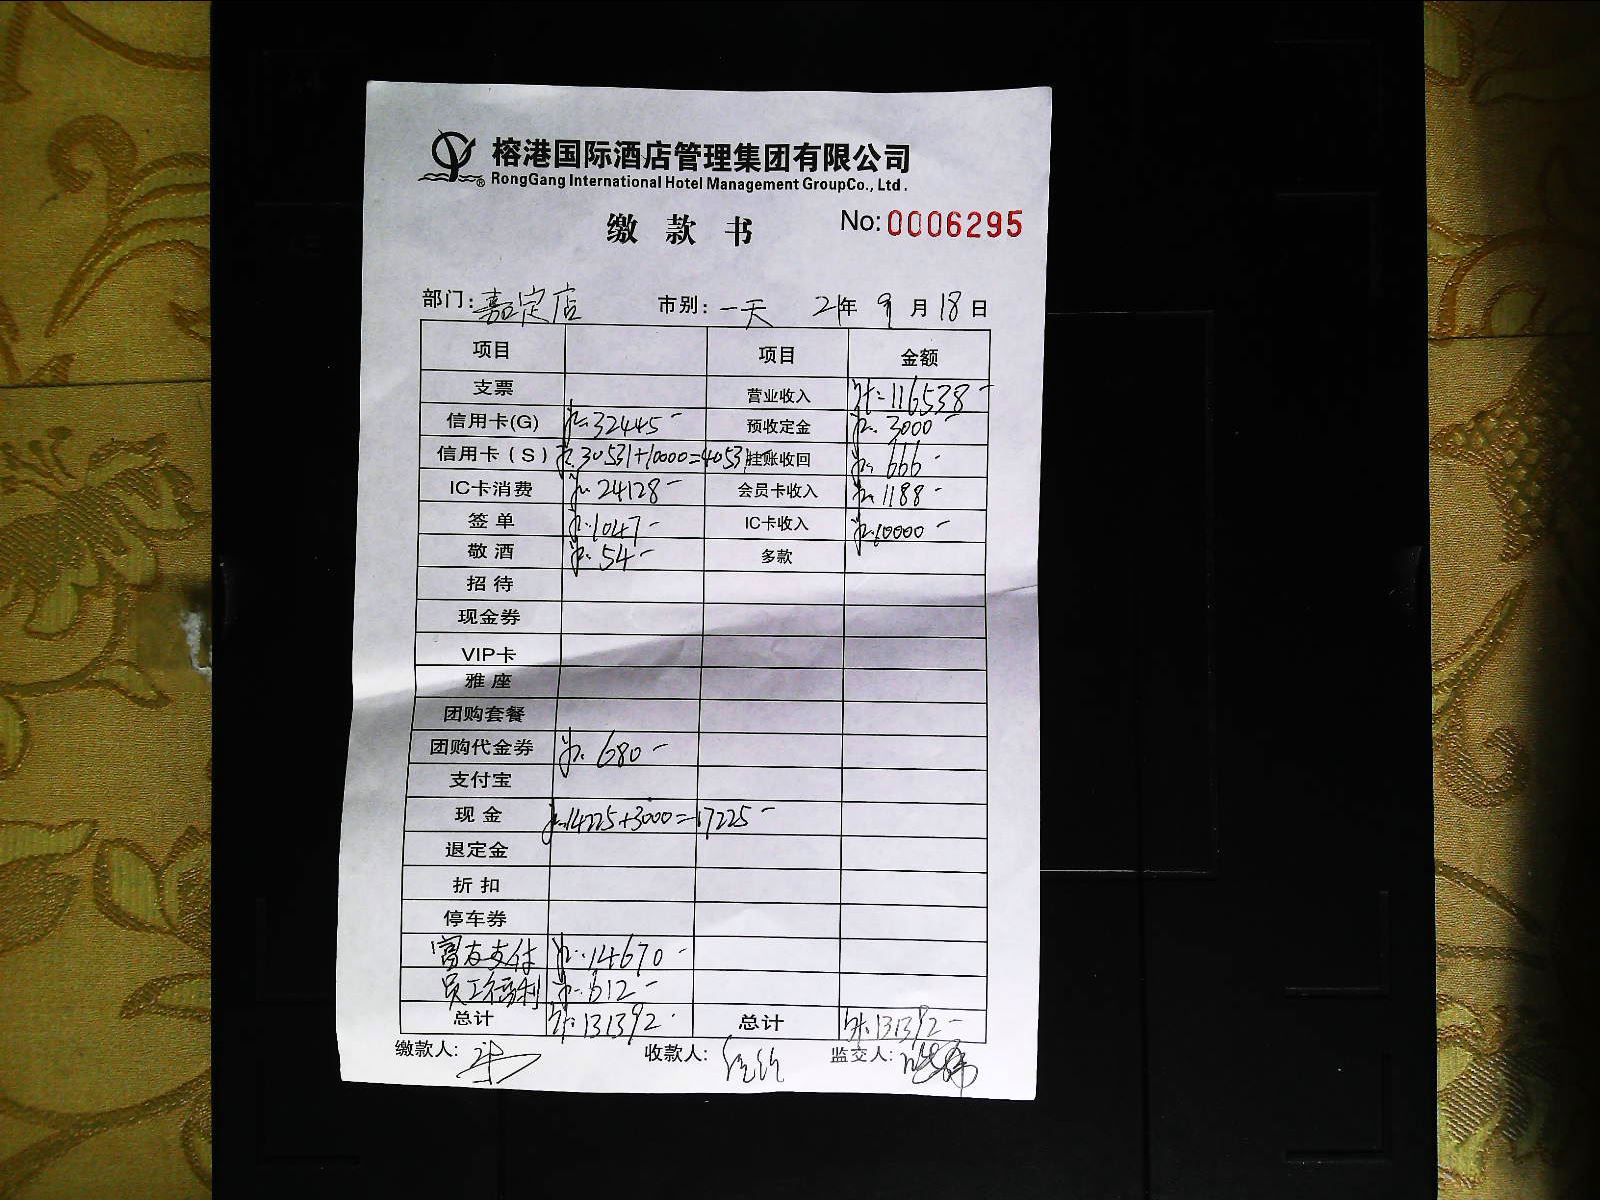 榕港国际酒店管理集团有限公司
® RongGang International Hotel Management GroupCo., Ltd.
缴款书 No:0006295
部门:嘉定店 市别:一天 21年 9月18日
项目 项目 金额
支票 营业收入 计:116538-
信用卡(G) 32445- 预收定金 3000-
信用卡(S) 30531+10000=40531 挂账收回 666-
IC卡消费 24128- 会员卡收入 1188-
签单 1047- IC卡收入 10000-
敬酒 54- 多款
招待
现金券
VIP卡
雅座
团购套餐
团购代金券 680-
支付宝
现金 14225+3000=17225-
退定金
折扣
停车券
富友支付 14670-
员工福利 612-
总计 计:131392- 总计 计:131392-
缴款人: 收款人: 监交人: